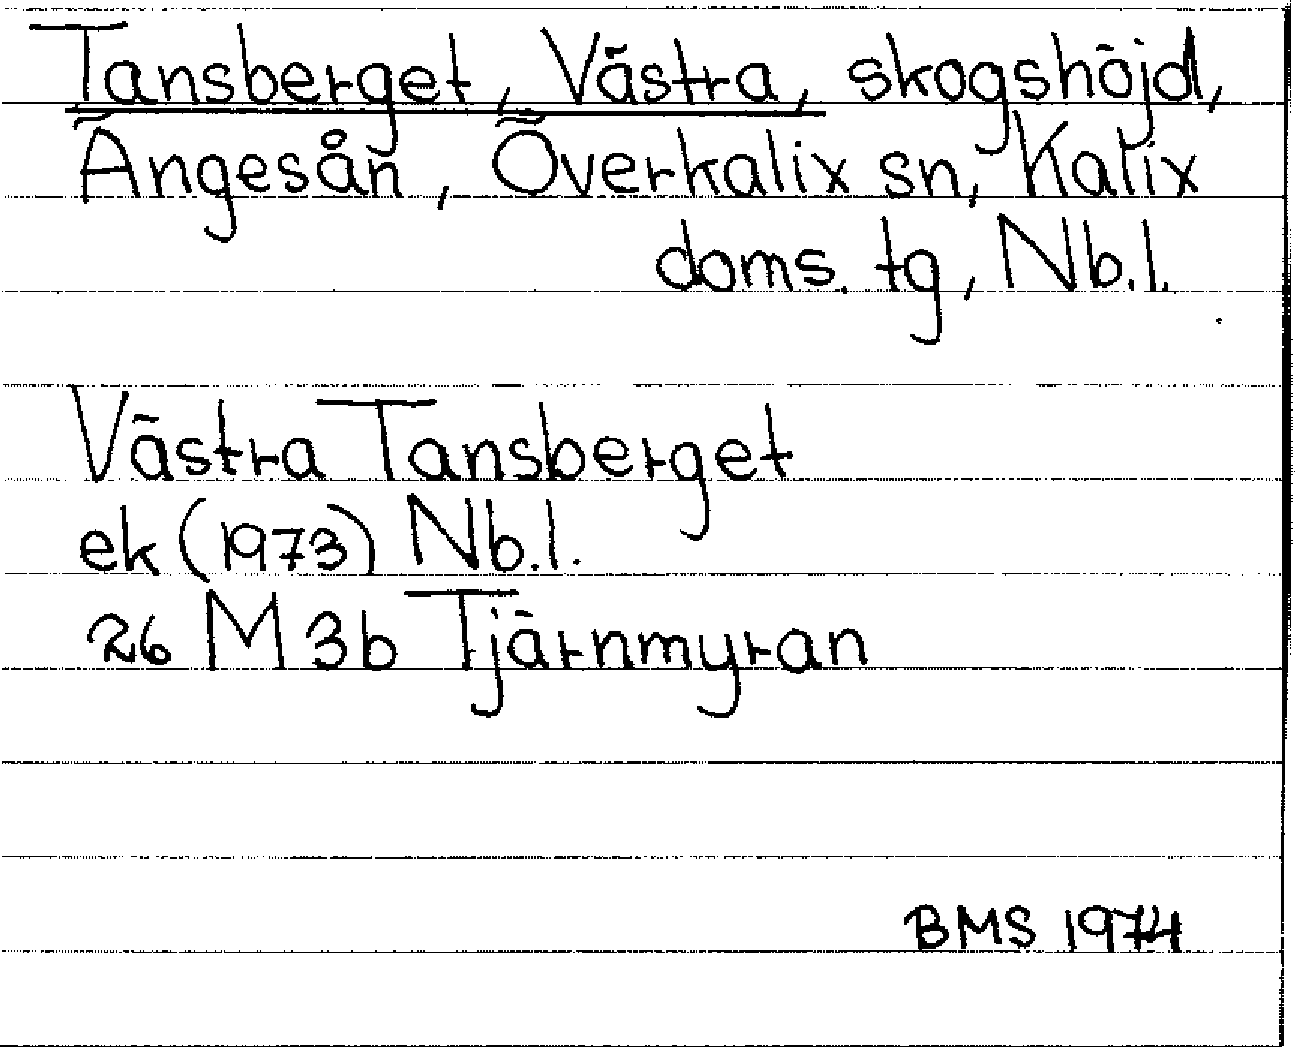 Tansberget, Västra, skogshöjd,
Ängesån, Överkalix sn, Kalix
doms. tg, Nb.l.
Västra Tansberget
ek (1973) Nb.l.
26 M 3b Tjärnmyran
BMS 1974